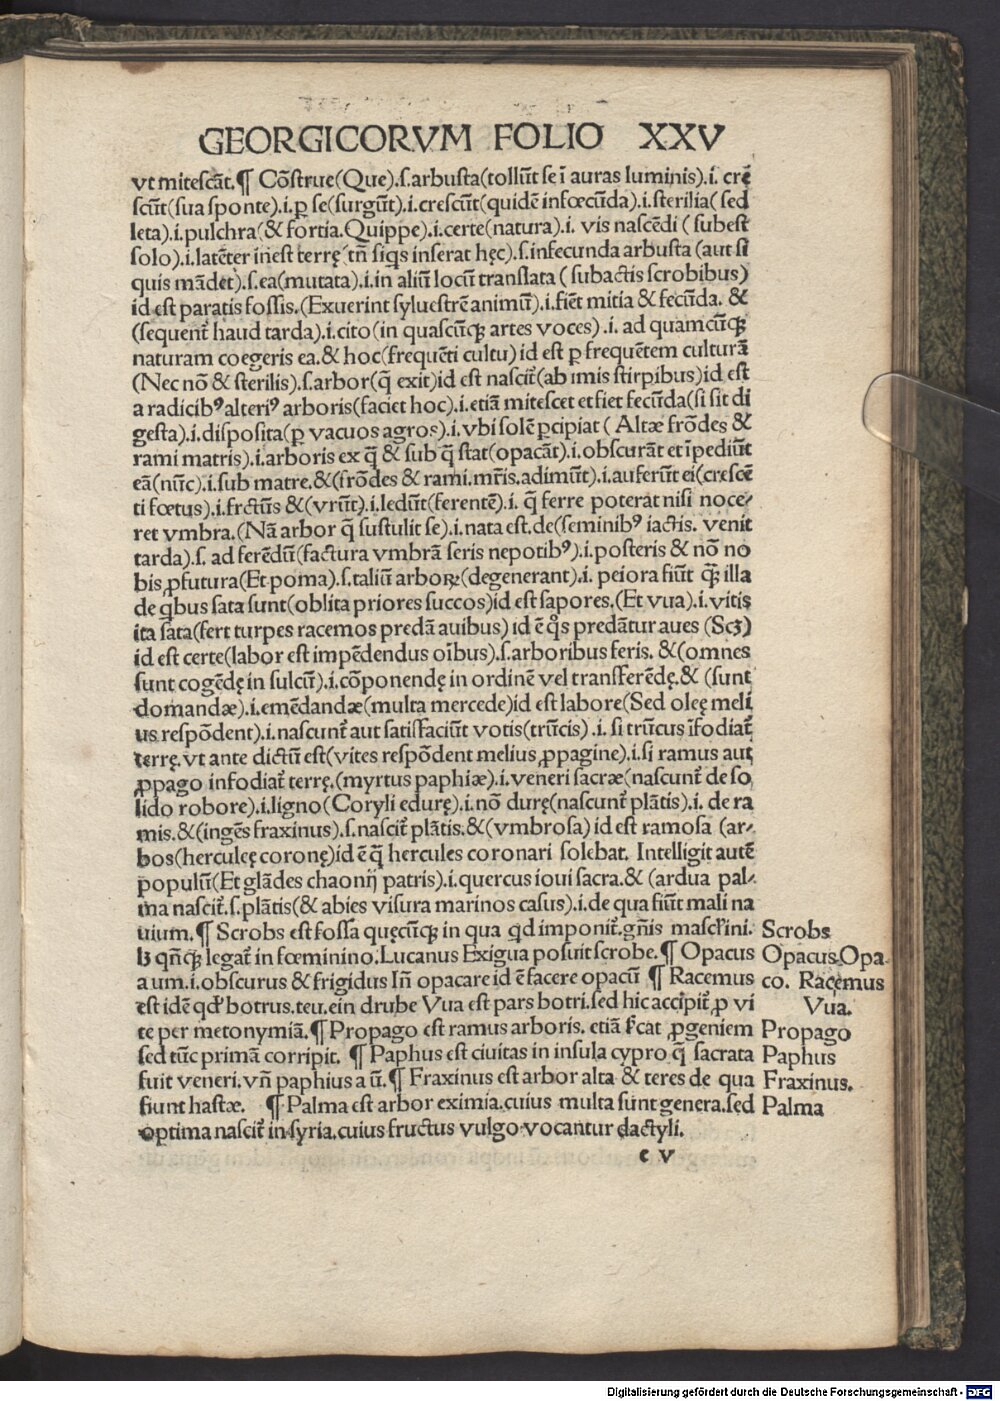 GEORGICORVM FOLIO XXV
vt mitescāt.¶ Cōstrue(Que).s.arbusta(tollūt se ī auras luminis).i. crē
scūt(sua sponte).i.ꝑ se(surgūt).i.crescūt(quidē infœcūda).i.sterilia( sed
leta).i.pulchra(& fortia.Quippe).i.certe(natura).i. vis nascēdi ( subest
solo).i.latēter inest terrę(tñ siqs inserat hęc).s.infecunda arbusta (aut si
quis mādet).s.ea(mutata).i.in aliū locū translata ( subactis scrobibus)
id est paratis fossis.(Exuerint syluestrē animū).i.fiēt mitia & fecūda. &
(sequent̃ haud tarda).i.cito(in quascūqꝫ artes voces) .i. ad quamcūqꝫ
naturam coegeris ea.& hoc(frequēti cultu) id est ꝑ frequētem culturā
(Nec nō & sterilis).s.arbor(q̄ exit)id est nascit̃(ab imis stirpibus)id est
a radicibꝰ alteriꝰ arboris(faciet hoc).i.etiā mitescet et fiet fecūda(si sit di
gesta).i.disposita(ꝑ vacuos agros).i.vbi solē ꝑcipiat ( Altæ frōdes &
rami matris).i.arboris ex q̄ & sub q̄ stat(opacāt).i.obscurāt et īpediūt
eā(nūc).i.sub matre.&(frōdes & rami.mr̃is.adimūt).i.auferūt ei(crescē
ti fœtus).i.frctūs &(vrūt).i.ledūt(ferentē).i. q̄ ferre poterat nisi noce⸗
ret vmbra.(Nā arbor q̄ sustulit se).i.nata est.de(seminibꝰ iactis. venit
tarda).s. ad ferēdū(factura vmbrā seris nepotibꝰ).i.posteris & nō no
bis ꝓfutura(Et poma).s.taliū arboꝝ(degenerant).i. peiora fiūt q̄ꝫ illa
de qbus sata sunt(oblita priores succos)id est sapores.(Et vua).i.vitis
ita sata(fert turpes racemos predā auibus) id ē q̄s predātur aues (Scꝫ)
id est certe(labor est impēdendus oībus).s.arboribus feris. &(omnes
sunt cogēdę in sulcū).i.cōponendę in ordinē vel transferēdę.& (sunt
domandæ).i.emēdandæ(multa mercede)id est labore(Sed oleę meli
us respōdent).i.nascunt̃ aut satisfaciūt votis(trūcis) .i. si trūcus īfodiat̃
terrę.vt ante dictū est(vites respōdent melius ꝓpagine).i.si ramus aut
ꝓpago infodiat̃ terrę.(myrtus paphiæ).i.veneri sacræ(nascunt̃ de so
lido robore).i.ligno(Coryli edurę).i.nō durę(nascunt̃ plātis).i. de ra
mis.&(ingēs fraxinus).s.nascit̃ plātis.&(vmbrosa) id est ramosa (ar⸗
bos(herculeę coronę)id ē q̄ hercules coronari solebat. Intelligit autē
populū(Et glādes chaonij patris).i.quercus ioui sacra.& (ardua pal⸗
ma nascit̃.s.plātis(& abies visura marinos casus).i.de qua fiūt mali na
uium.¶ Scrobs est fossa quęcūqꝫ in qua qd imponit̃.gñis mascl'ini.
Scrobs
ꝫ qñqꝫ legat̃ in fœminino.Lucanus Exigua posuit scrobe.¶ Opacus
Opacus.Opa
a um.i.obscurus & frigidus Iñ opacare id ē facere opacū ¶ Racemus
co. Racemus
est idē qd' botrus.teu.ein drube Vua est pars botri.sed hic accipit̃ ꝓ vi
Vua.
te per metonymiā.¶ Propago est ramus arboris. etiā s̃cat ꝓgeniem
Propago
sed tūc primā corripit. ¶ Paphus est ciuitas in insula cypro q̄ sacrata
Paphus
fuit veneri.vñ paphius a ū.¶ Fraxinus est arbor alta & teres de qua
Fraxinus.
fiunt hastæ. ¶ Palma est arbor eximia.cuius multa sunt genera.sed
Palma
optima nascit̃ in syria.cuius fructus vulgo vocantur dactyli.
c v
Digitalisierung gefördert durch die Deutsche Forschungsgemeinschaft - DFG